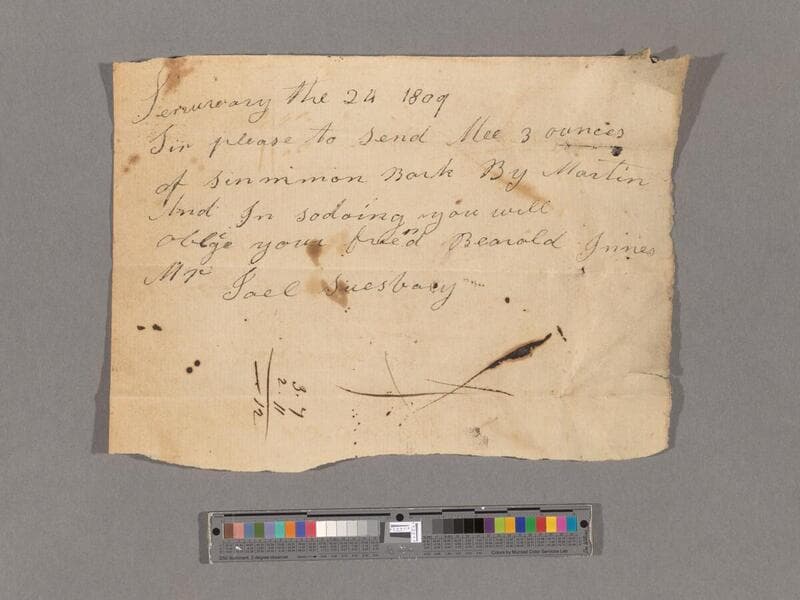 Jenuwary the 24 1809
Sir please to send Mee 3 ounces
of sinnmmon Bark By Martin
And In sodoing you will
oblge your frend Bearold Jnnes
Mr Joel Suesbary
3.7
2.11
12